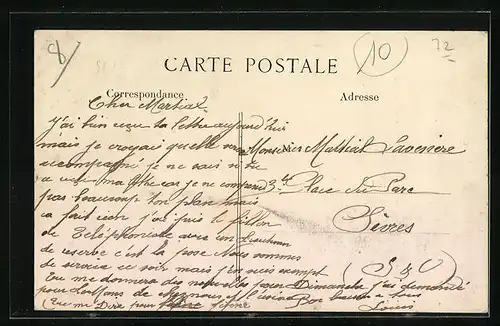 8
10
72
CARTE POSTALE
Correspondance
Adresse
Cher Martial
J'ai bien reçu ta lettre aujourd'hui
mais je croyais quelle
accompagné je ne sais si tu
a ma lettre car je ne comprend
pas beaucoup ton plan mais
ça fait rien j'ai pris le
de Téléphoniste avec un
de reserve c'est la pose Nous sommes
de service ce soir mais j'en suis exempt
Tu me donnera des nouvelles pour Dimanche j'ai demandé
pour
(Tu me Dira pour
Bon baiser a tous
Louis
Monsieur Martial
3 Place du Parc
Sèvres
(S & O)